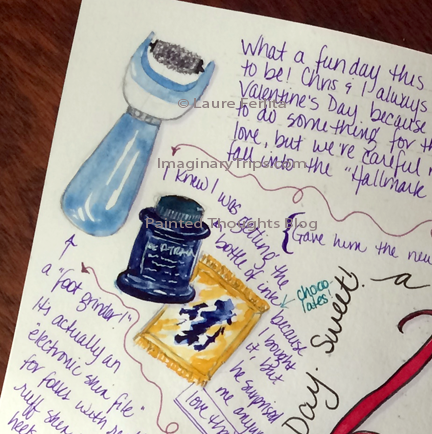 What a fun day this
to be! Chris & I always
Valentine's Day because
to do something for th
love, but we're careful n
fall into the "Hallmark
© Laure Ferlita
ImaginaryTrips.com
Painted Thoughts Blog
I knew I was
getting the
bottle of ink
because
I bought
it, but
he surprised
me anyw
love th
{Gave him the new
choco-
lates.
a
Day. Sweet!
a "foot grinder!"
It's actually an
electronic skin file"
for folks with
ruff skin
heel